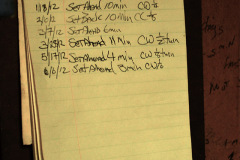 1/8/12 Set Ahead 10 min CW ½
3/6/12 Set Back 10 min CC ½
3/7/12 Set Ahead 6 min
3/29/12 Set Ahead 11 Min CW ½ turn
5/17/12 Set Ahead 4 min CW ½ turn
6/6/12 Set Ahead 3 min CW ½